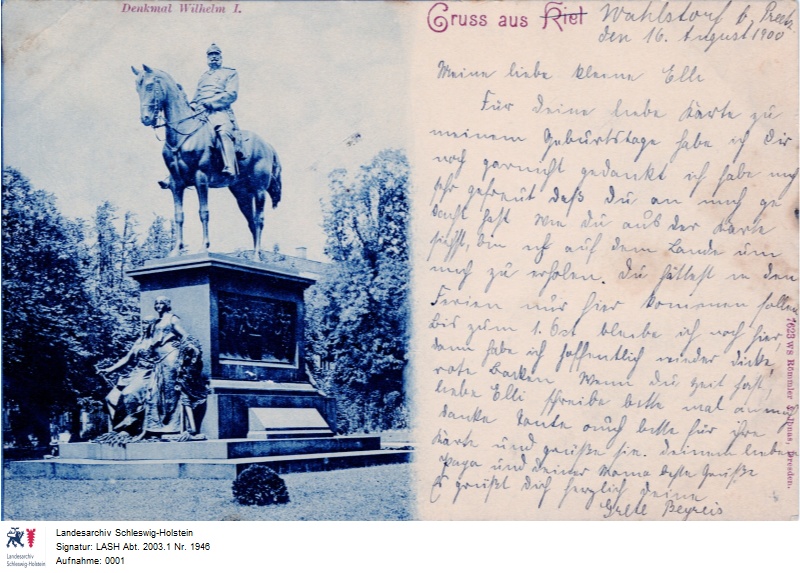 Denkmal Wilhelm I.
Gruss aus Kiel Wahlstorf b. Preetz
den 16. August 1900
Meine liebe kleine Elli
Für deine liebe Karte zu
meinem Geburtstage habe ich dir
noch garnicht gedankt ich habe mich
sehr gefreut daß du an mich ge
dacht hast Wie du aus der Karte
siehst, bin ich auf dem Lande um
mich zu erholen. Du hättest in den
Ferien nur hier kommen sollen
bis zum 1. Oct bleibe ich noch hier,
dann habe ich hoffentlich wieder dicke
rote Backen Wenn du Zeit hast,
liebe Elli schreibe bitte mal an mich
danke Tante auch bitte für ihre
Karte und grüße sie. Deinem lieben
Papa und deiner Mama beste Grüße
Es grüßt dich herzlich deine
Grete Beyreis
7623 WS Römmler & Jonas, Dresden.
Landesarchiv Schleswig-Holstein
Signatur: LASH Abt. 2003.1 Nr. 1946
Aufnahme: 0001
Landesarchiv
Schleswig-Holstein